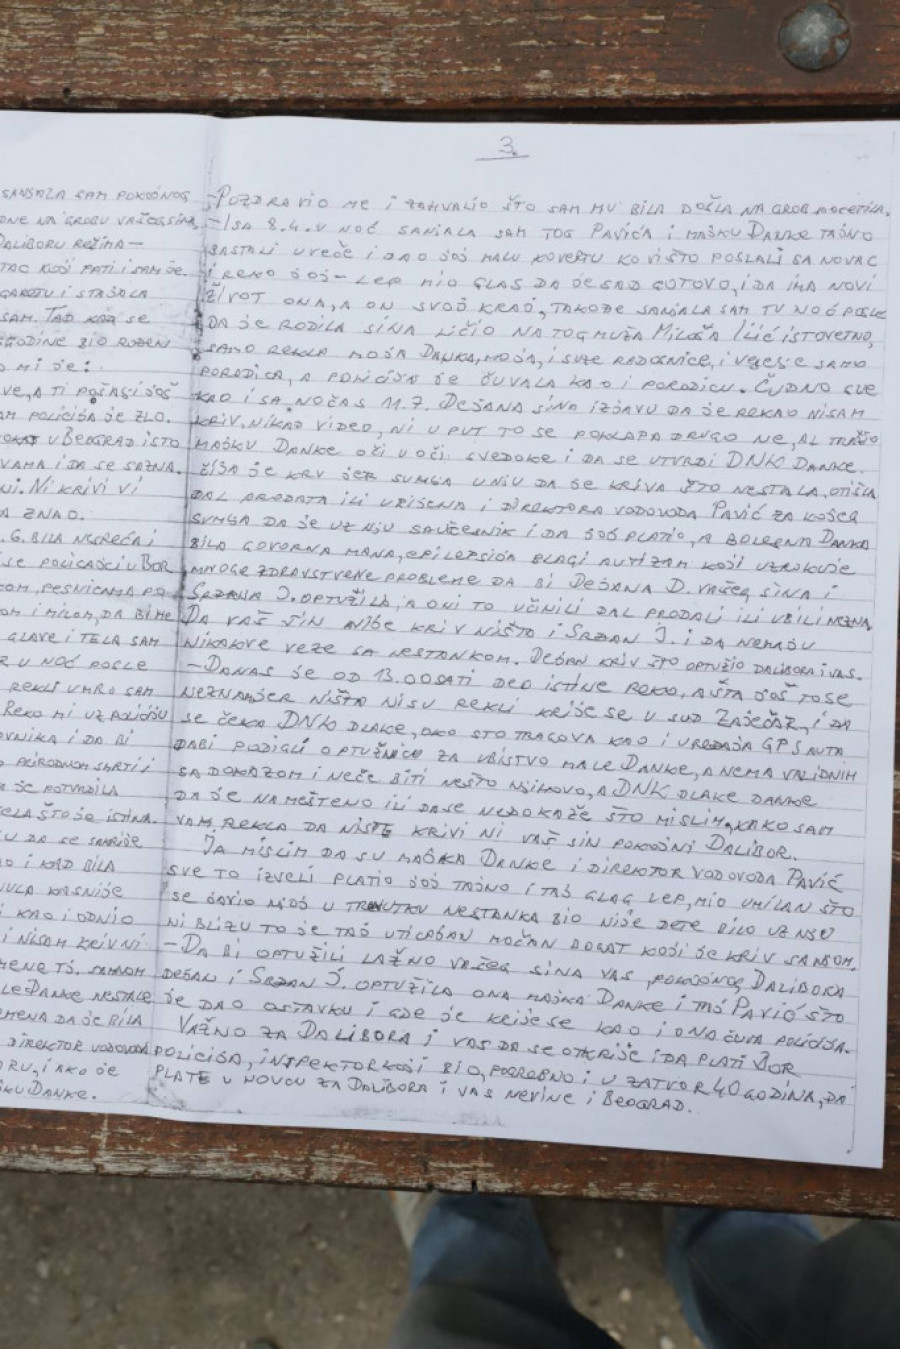 3.
SANJALA SAM POKOJNOG
DNE NA GROBU VAŠEG SINA,
DALIBORU REŽIMA-
TAC KOJI PATI I SAM JE.
SAM. TAD KAD SE
GODINE BIO ROĐEN
O MI JE:
VE, A TI POLAZI JOŠ
AM POLICIJA JE ZLO.
U BEOGRAD ISTO
VAMA I DA SE SAZNA.
NI. NI KRIVI VI
A ZNAO.
G. BILA NESREĆA I
SE POLICAJCI U BOR
COM, PESNICAMA PO
OM I MILOM, DA BI ME
GLAVE I TELA SAM
R U NOĆ POSLE
REKLI UMRO SAM
REKO MI UZ POLICIJU
OVNIKA I DA BI
O PRIRODNOM SMRTI I
A JE POTVRDILA
ELA ŠTO JE ISTINA.
U DA SE SAKRIJE
NO I KAD BILA
NULA KASNIJE
I KAO I ODNIO
I NISAM KRIV NI
MENE TJ. SAMNOM
LE DANKE NESTALE
EMENA DA JE BILA
DIREKTOR VODOVODA
ORU, I AKO JE
JKU DANKE.
-POZDRAVIO ME I ZAHVALIO ŠTO SAM MU BILA DOŠLA NA GROB
-I SA 8.4. U NOĆ SANJALA SAM TOG PAVIĆA I MAJKU DANKE TAJNO
SASTALI UVEČE I DAO JOJ MALU KOVERTU KO VIŠTO POSLALI SA NOVAC
I REKO JOJ- LEP MIO GLAS DA JE SAD GOTOVO, I DA IMA NOVI
ŽIVOT ONA, A ON SVOJ KRAJ, TAKOĐE SANJALA SAM TU NOĆ POSLE
DA JE RODILA SINA LIČIO NA TOG MUŽA MILOŠA ILIĆ ISTOVETNO,
SAMO REKLA MOJA DANKA, MOJA, I SUZE RADOSNICE, I VESELJE SAMO
PORODICA, A POLICIJA JE ČUVALA KAO I PORODICU. ČUDNO SVE
KAO I SA NOĆAS 11.7. DEJANA SINA IZJAVU DA JE REKAO NISAM
KRIV, NIKAD VIDEO, NI U PUT TO SE POKLAPA DRUGO NE, AL TRAŽIO
MAJKU DANKE OČI U OČI SVEDOKE I DA SE UTVRDI DNK DANKE.
ČIJA JE KRV JER SUMNJA U NJU DA JE KRIVA ŠTO NESTALA, OTIŠLA
DAL PRODATA ILI UBIJENA I DIREKTORA VODOVODA PAVIĆ ZA KOJEG
SUMNJA DA JE UZ NJU SAUČESNIK I DA JOJ PLATIO, A BOLESNA DANKA
BILA GOVORNA MANA, EPILEPSIJA BLAGI AUTIZAM KOJI UZROKUJE
MNOGE ZDRAVSTVENE PROBLEME DA BI DEJANA D. VAŠEG SINA I
SRĐANA J. OPTUŽILA, A ONI TO UČINILI DAL PRODALI ILI UBILI NEZNA.
DA VAŠ SIN NIJE KRIV NIŠTA I SRĐAN J. I DA NEMAJU
NIKAKVE VEZE SA NESTANKOM. DEJAN KRIV ŠTO OPTUŽIO DALIBORA I VAS.
-DANAS JE OD 13.00 SATI DEO ISTINE REKO, A ŠTA JOŠ TO SE
NEZNA JER NIŠTA NISU REKLI KRIJE SE U SUD ZAJEČAR, I DA
SE ČEKA DNK DLAKE, OKO STO TRAGOVA KAO I UREĐAJA GPS AUTA
DA BI PODIGLI OPTUŽNICU ZA UBISTVO MALE DANKE, A NEMA VALIDNIH
SA DOKAZOM I NEĆE BITI NEŠTO NJIHOVO, A DNK DLAKE DANKE
DA JE NAMEŠTENO ILI DA SE NEDOKAŽE ŠTO MISLIM, KAKO SAM
VAM REKLA DA NISTE KRIVI NI VAŠ SIN POKOJNI DALIBOR.
JA MISLIM DA SU MAJKA DANKE I DIREKTOR VODOVODA PAVIĆ
SVE TO IZVELI PLATIO JOJ TAJNO I TAJ GLAS LEP, MIO UMILAN ŠTO
SE JAVIO NJOJ U TRENUTKU NESTANKA BIO NIJE DETE BILO UZ NJU
NI BLIZU TO JE TAJ UTICAJAN MOĆAN BOGAT KOJI JE KRIV SA NJOM.
-DA BI OPTUŽILI LAŽNO VAŠEG SINA VAS, POKOJNOG DALIBORA
DEJAN I SRĐAN J. OPTUŽILA ONA MAJKA DANKE I TAJ PAVIĆ ŠTO
JE DAO OSTAVKU I GDE JE KRIJE SE KAO I ONA ČUVA POLICIJA.
VAŽNO ZA DALIBORA I VAS DA SE OTKRIJE I DA PLATI BOR
POLICIJA, INSPEKTOR KOJI BIO, POGREBNO I U ZATVOR 40 GODINA, DA
PLATE U NOVCU ZA DALIBORA I VAS NEVINE I BEOGRAD.